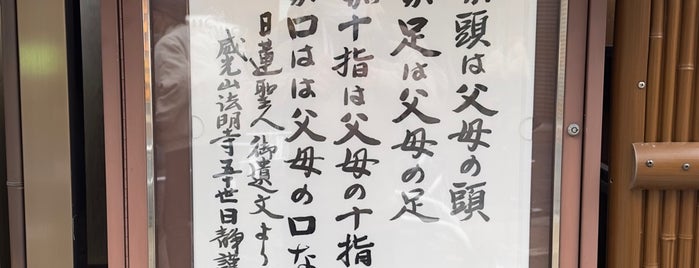 が頭は父母の頭
が足は父母の足
が十指は父母の十指
が口はは父母の口な
日蓮聖人御遺文より
威光山法明寺五十世日静謹